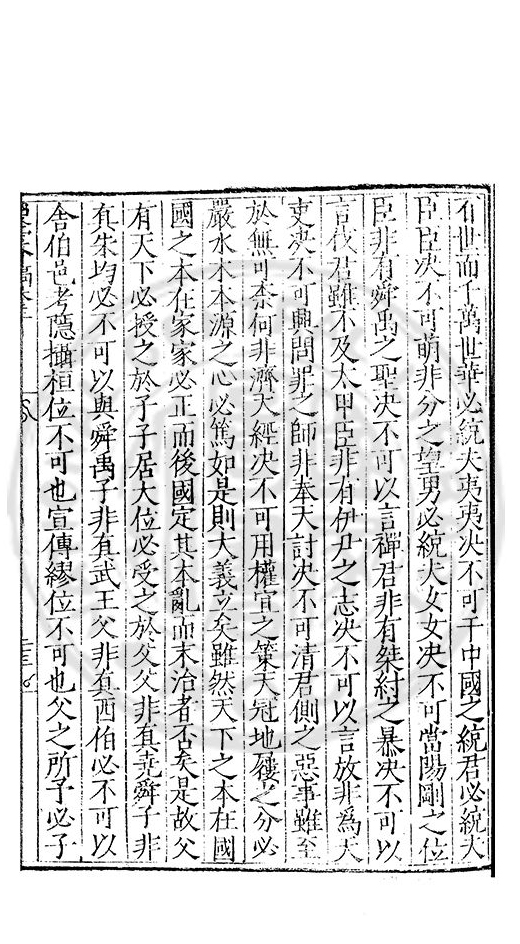 百世而千萬世華必統夫夷夷决不可干中國之統君必統夫
臣臣决不可萌非分之望男必統夫女女决不可當陽剛之位
臣非有舜禹之聖决不可以言禪君非有桀紂之暴决不可以
言伐君雖不及太甲臣非有伊尹之志决不可以言放非爲天
吏决不可興問罪之師非奉天討决不可清君側之惡事雖至
於無可柰何非濟天經决不可用權宜之策天冠地屨之分必
嚴水木本源之心必篤如是則大義立矣雖然天下之本在國
國之本在家家必正而後國定其本亂而末治者否矣是故父
有天下必授之於子子居大位必受之於父父非真堯舜子非
真朱均必不可以與舜禹子非有武王父非真西伯必不可以
舍伯邑考隱攝桓位不可也宣傳繆位不可也父之所予必子